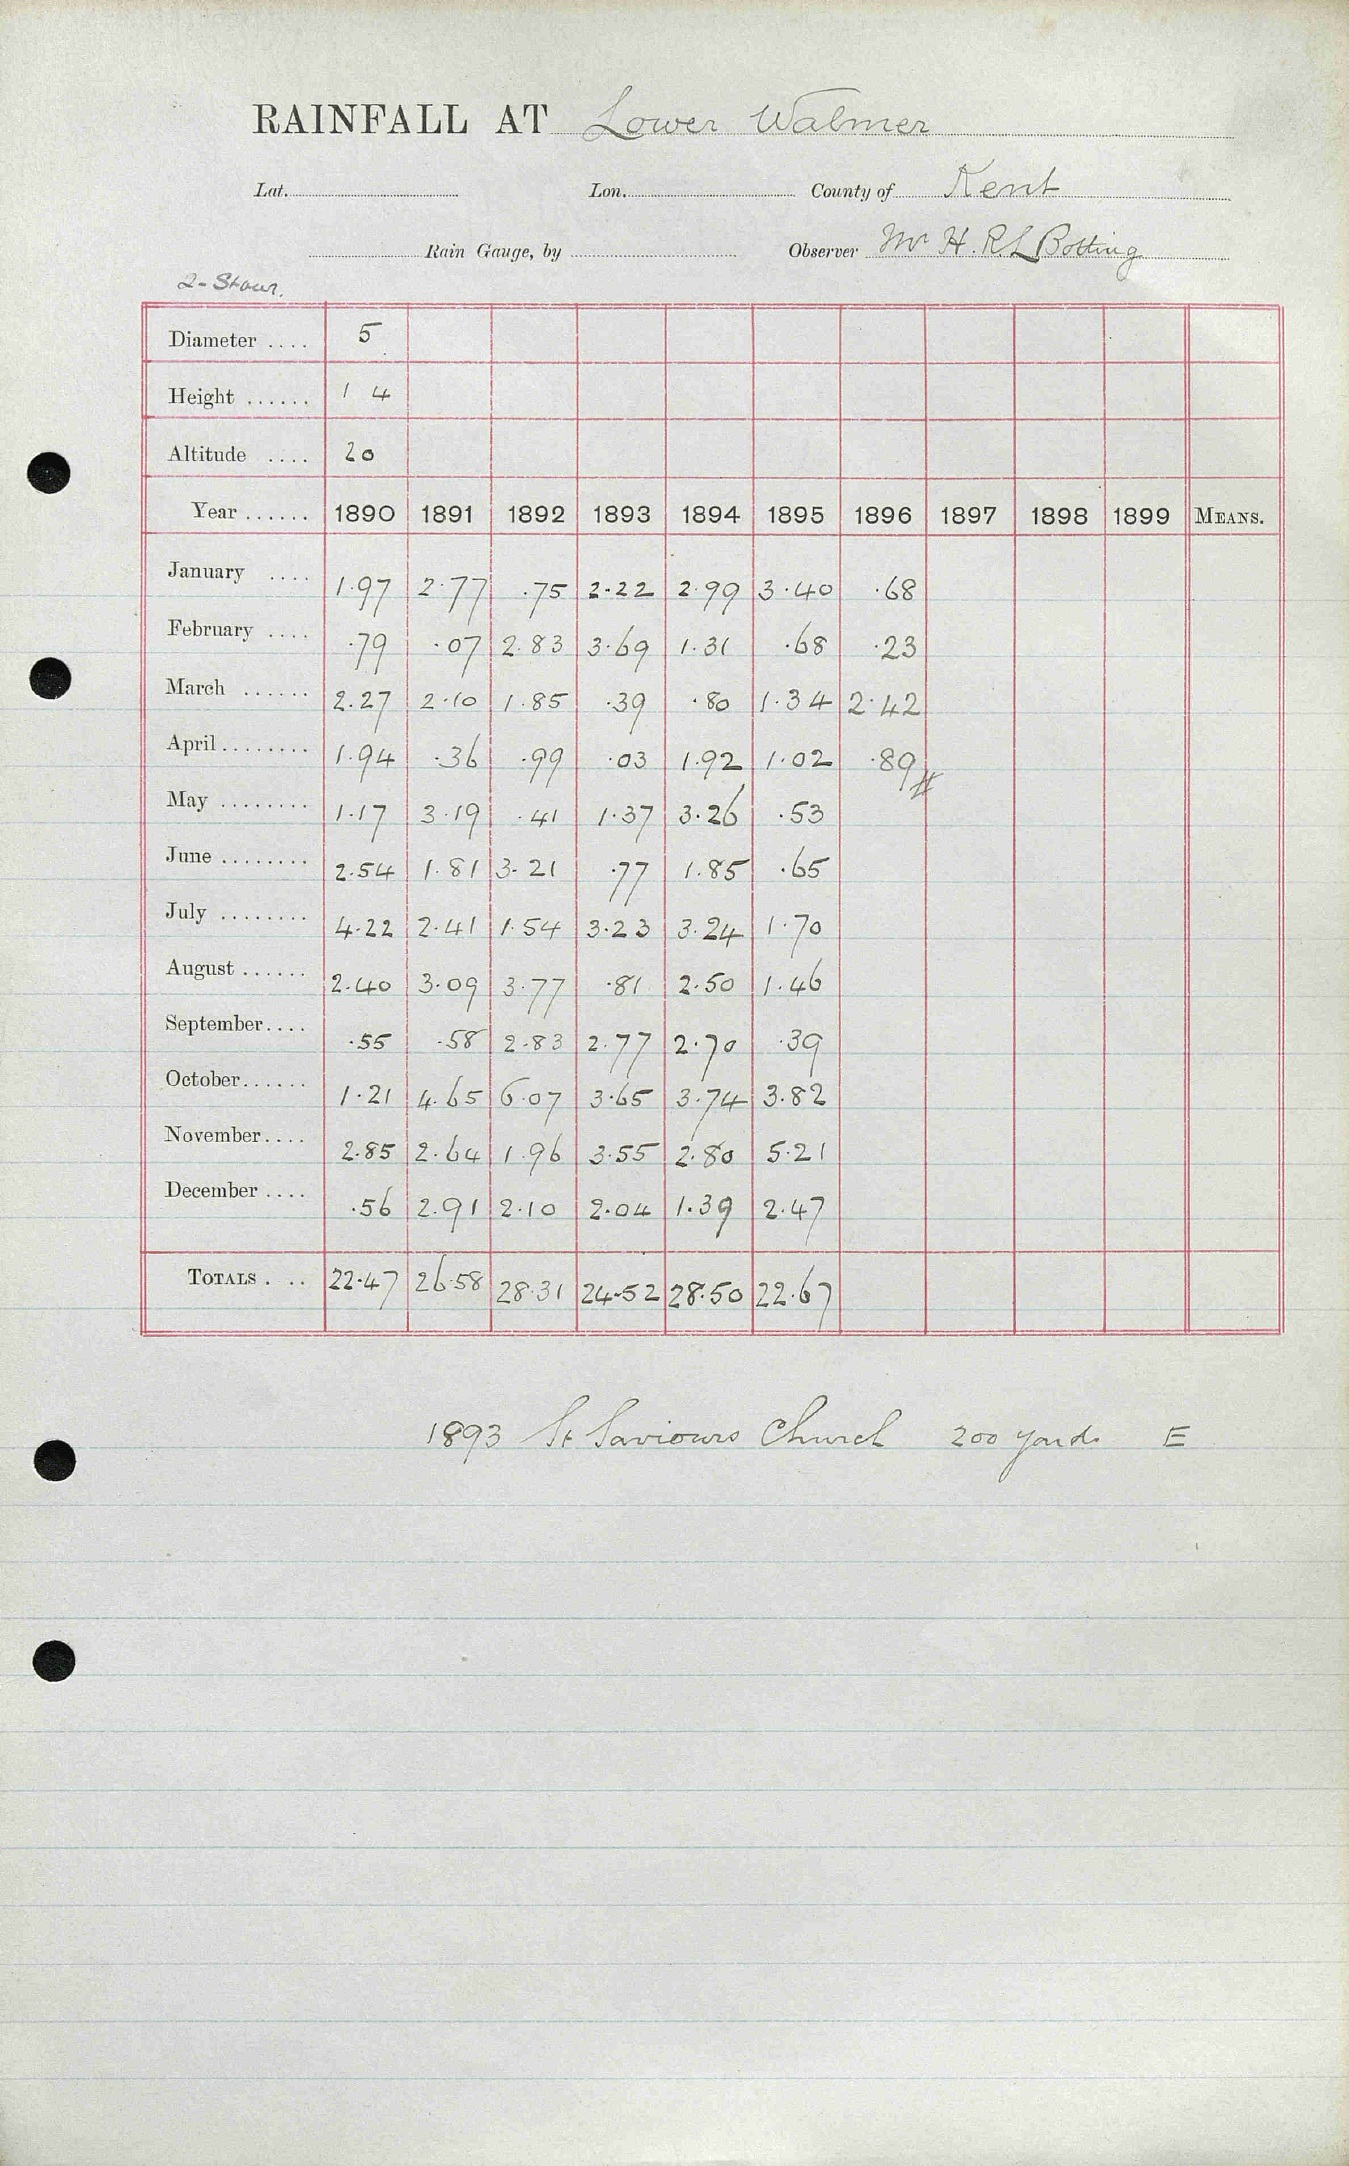 RAINFALL AT Lower Walmer
Lat. Lon. County of Kent
Rain Gauge, by Observer Mr H. R. L Botting
2-Stour.
Diameter .... 5
Height ...... 1 4
Altitude .... 20
Year ...... 1890 1891 1892 1893 1894 1895 1896 1897 1898 1899 MEANS.
January .... 1.97 2.77 .75 2.22 2.99 3.40 .68
February .... .79 .07 2.83 3.69 1.31 .68 .23
March ...... 2.27 2.10 1.85 .39 .80 1.34 2.42
April ........ 1.94 .36 .99 .03 1.92 1.02 .89
May ........ 1.17 3.19 .41 1.37 3.26 .53
June ........ 2.54 1.81 3.21 .77 1.85 .65
July ........ 4.22 2.41 1.54 3.23 3.24 1.70
August ...... 2.40 3.09 3.77 .81 2.50 1.46
September.... .55 .58 2.83 2.77 2.70 .39
October...... 1.21 4.65 6.07 3.65 3.74 3.82
November.... 2.85 2.64 1.96 3.55 2.80 5.21
December .... .56 2.91 2.10 2.04 1.39 2.47
TOTALS . .. 22.47 26.58 28.31 24.52 28.50 22.67
1893 St Saviours Church 200 yards E